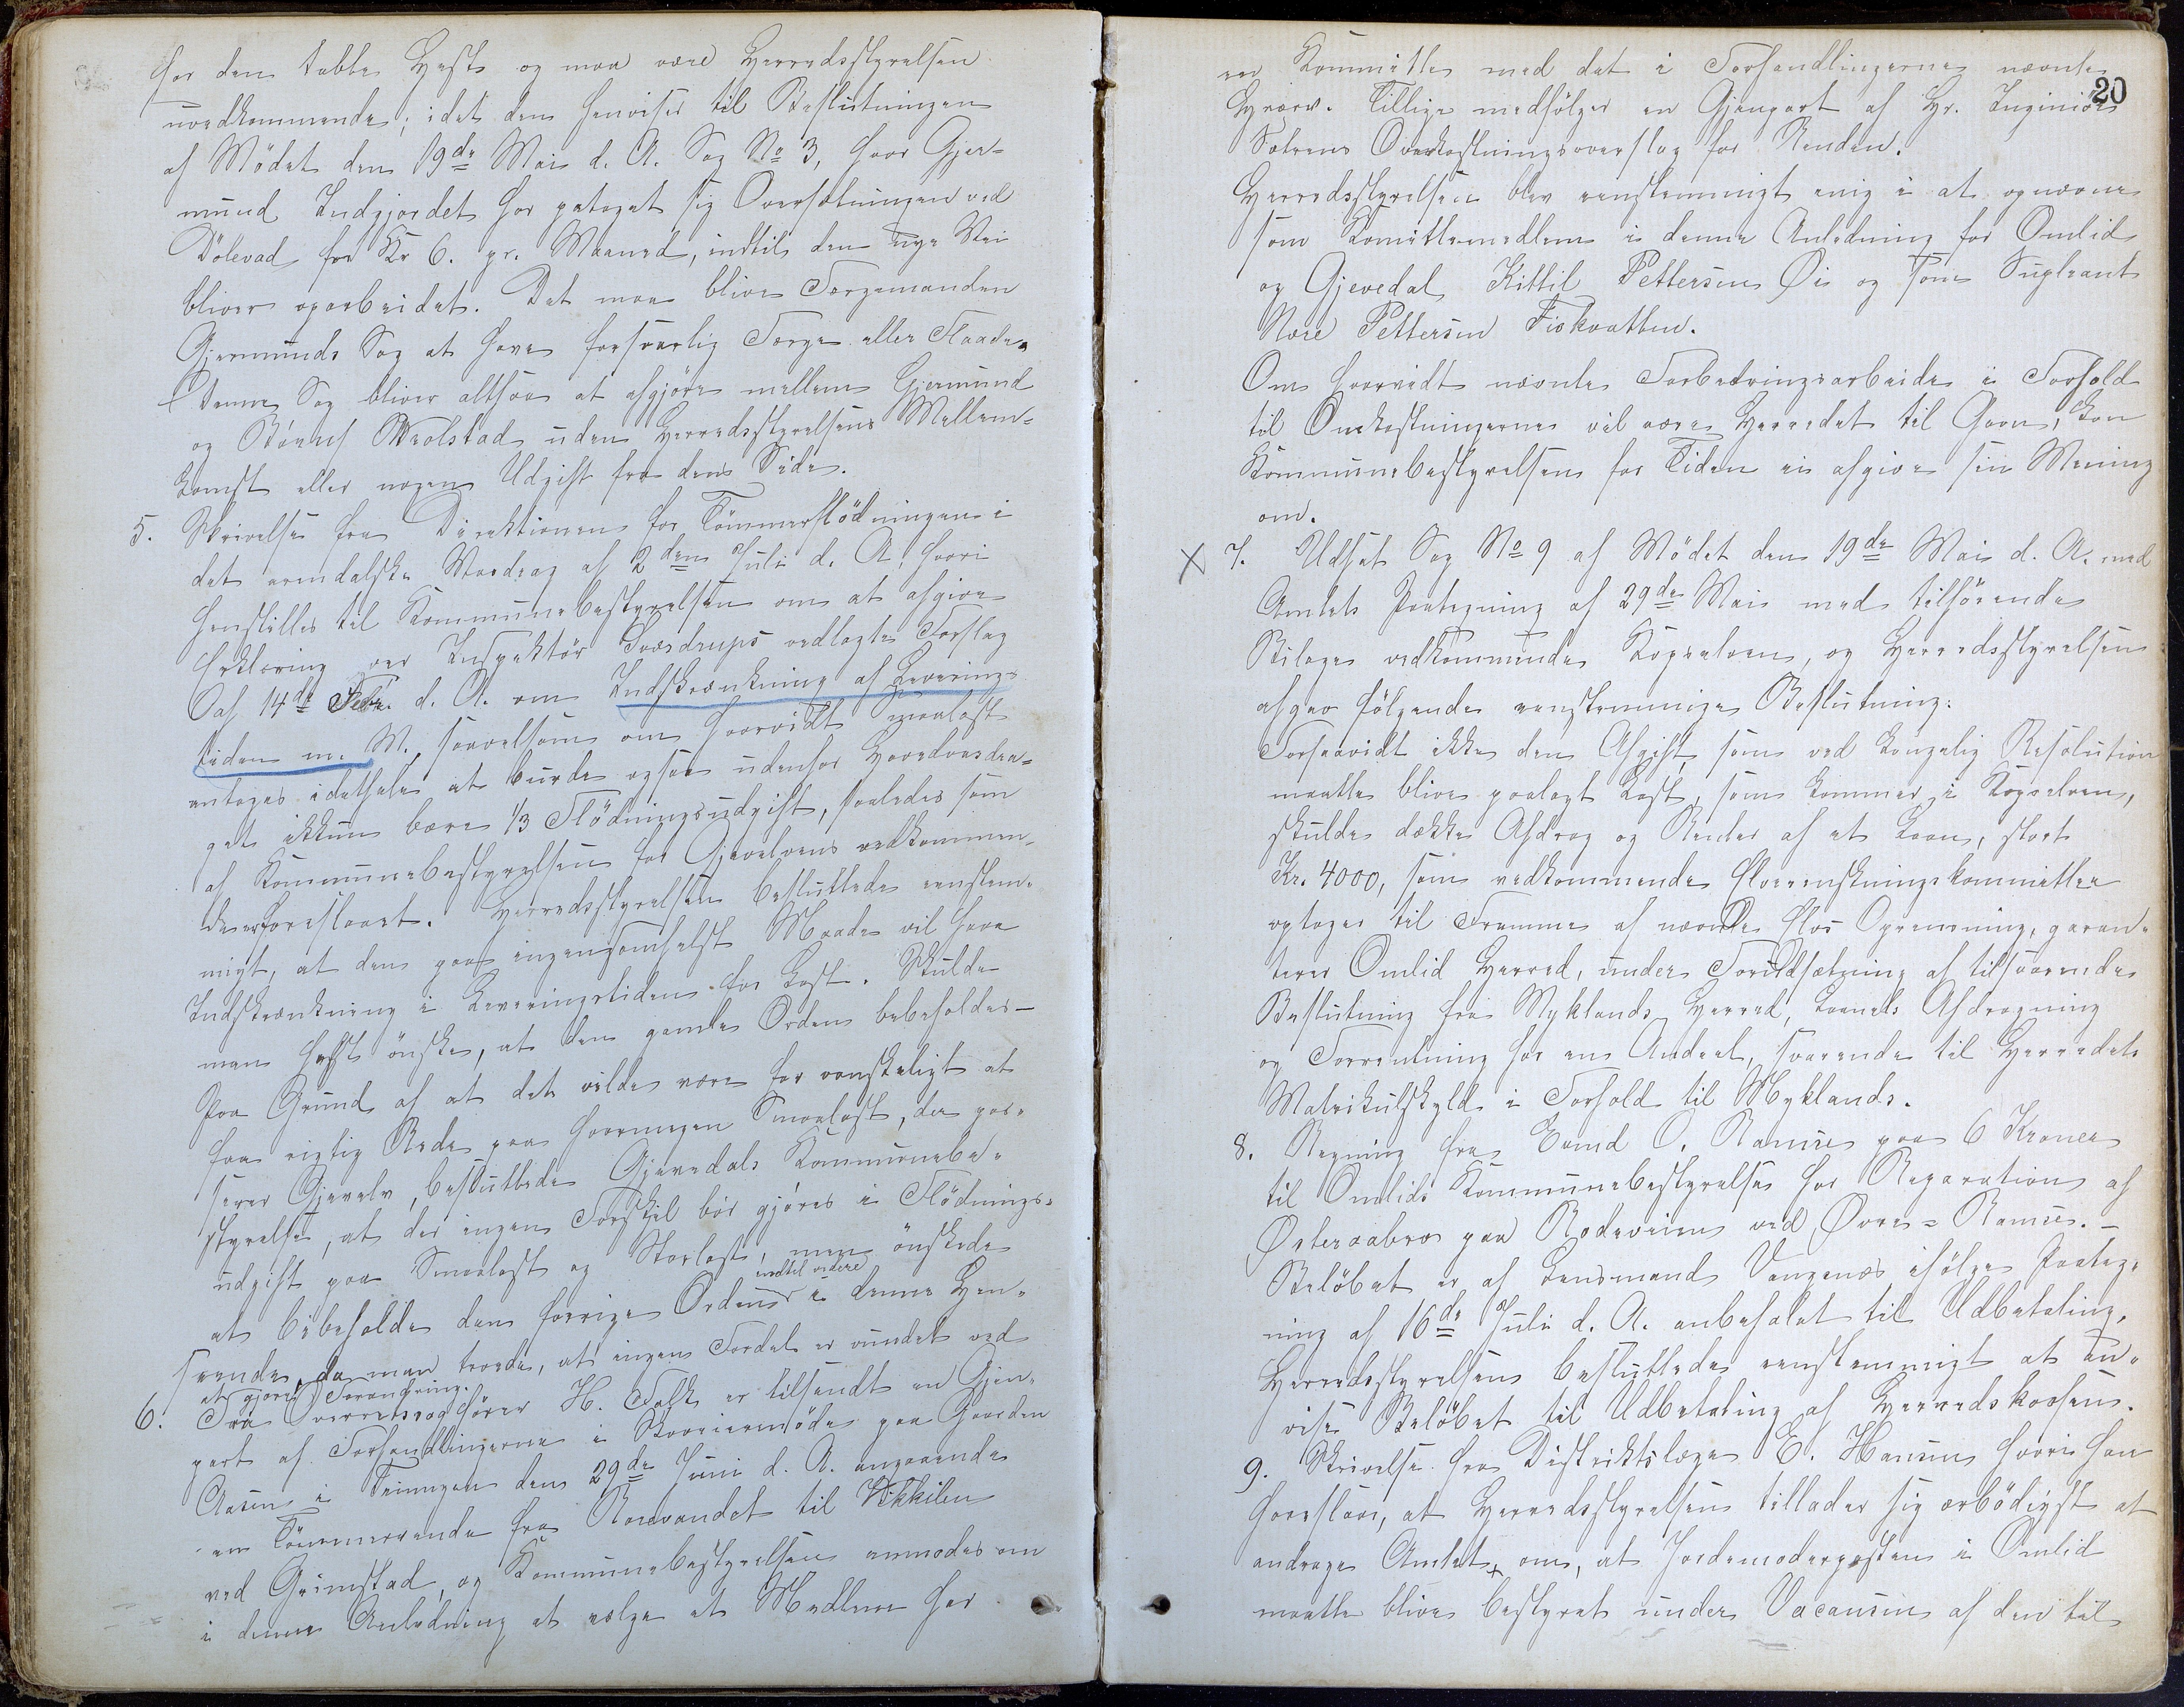 for den tabte Hest og maa være Herredsstyrelsen
uvedkommende; idet den henviser til Beslutningen
af Mödet den 19de Mai d. A. Sag No 3, hvor Gjer-
mund Indgjordet har paataget sig Oversætningen ved
Dölevad for Kr 6. pr. Maaned, indtil den nye Vei
bliver oparbeidet. Det maa blive Færgemanden
Gjermunds Sag at have forsvarlig Færge eller Flaade.
Denne Sag bliver altsaa at afgjöre mellem Gjermund
og Skolstad uden Herredsstyrelsens Mellem-
komst eller nogen Udgift fra dens Side.
5. Skrivelse fra Direktionen for Tömmerflödningen i
det arendalske Vasdrag af 2den Juli d. A. hvori
henstilles til Kommunebestyrelsen om at afgive
Erklæring over Inspektör Sværdrups vedlagte Forslag
af 14de Febr. d. A. om Indskrænkning af Leverings-
tiden m. M. saavelsom om hvorvidt Smaalast
antages idethele at burde ogsaa udenfor Hovedvasdra-
get ikkun bære 1/3 Flödningsudgift, saaledes som
af Kommunebestyrelsen for Gjevelvens vedkommen-
de er foreslaaet. Herredsstyrelsen besluttede eenstem-
migt, at den paa ingensomhelst Maade vil have
Indskrænkning i Leveringstiden for Last. Skulde
man helst önske, at den gamle Orden beholdes –
Paa Grund af at det vilde være for vanskeligt at
faa rigtig Rede paa hvormegen Smaalast, der pas-
serer Gjevelv, besluttede Gjevedals Kommunebe-
styrelse, at der ingen Forskjel bör gjöres i Flödnings-
udgift paa Smaalast og Storlast, men önskede
at bibeholde den forrige Orden indtil videre i denne Hen-
seende, da man troede, at ingen Fordel er vundet ved
at gjöre Forandring.
6. Fra Overretssagförer H. Falk er tilsendt en Gjen-
part af Forhandlingerne i Skoveiermöde paa Gaarden
Aasen i den 29de Juni d. A. angaaende
en Tömmerrende fra Rorevandet til Vikkilen
ved Grimstad, og Kommunebestyrelsen anmodes om
i denne Anledning at vælge et Medlem for
20
en Kommitte med det i Forhandlingerne nævnte
Hverv. Tillige medfölger en Gjenpart af Hr. Inginiör
Omkostningsoverslag for Renden.
Herredsstyrelsen blev eenstemmigt enig i at opnævne
som Komittemedlem i denne Anledning for Omlid
og Gjevedal Kittil Pettersen Öi og som Supleant
Nore Pettersen Fiskvatten.
Om hvorvidt nævnte Forbedringsarbeide i Forhold
til Omkostningerne vil være Herredet til Gavn, kan
Kommunebestyrelsen for Tiden ei afgive sin Mening
om.
X 7. Udsat Sag No 9 af Mödet den 19de Mai d. A. med
Amtets Paategning af 29de Mai med tilhörende
Bilage vedkommende og Herredsstyrelsen
afgav fölgende eenstemmige Beslutning:
Forsaavidt ikke den Afgift som ved kongelig Resolution
maatte blive paalagt Last, som kommer i
skulde dække Afdrag og Renter af et Laan, stort
Kr. 4000, som vedkommende Elverenskningskommittee
optager til Fremme af nævnte Elvs Oprensning, garan-
terer Omlid Herred, under Forudsætning af tilsvarende
Beslutning fra Myklands Herred, Laanets Afdragning
og Forrentning for en Andeel, svarende til Herredets
Matrikulskyld i Forhold til Myklands.
8. Regning fra Eivind O. Ramse paa 6 Kroner
til Omlids Kommunebestyrelse for Reparation af
Österaabro paa Rodeveien ved Övre-Ramse. –
Belöbet er af Lensmand Vangenæs ifölge Paateg-
ning af 16de Juli d. A. anbefalet til Udbetaling.
Herredsstyrelsen besluttede eenstemmigt at an-
vise Belöbet til Udbetaling af Herredskassen.
9. Skrivelse fra Distriktslæge E. Hansen hvori han
foreslaar, at Herredsstyrelsen tillader sig ærbödigst at
andrage Amtet om, at Jordemoderposten i Omlid
maatte blive bestyret under Vacansen af den til